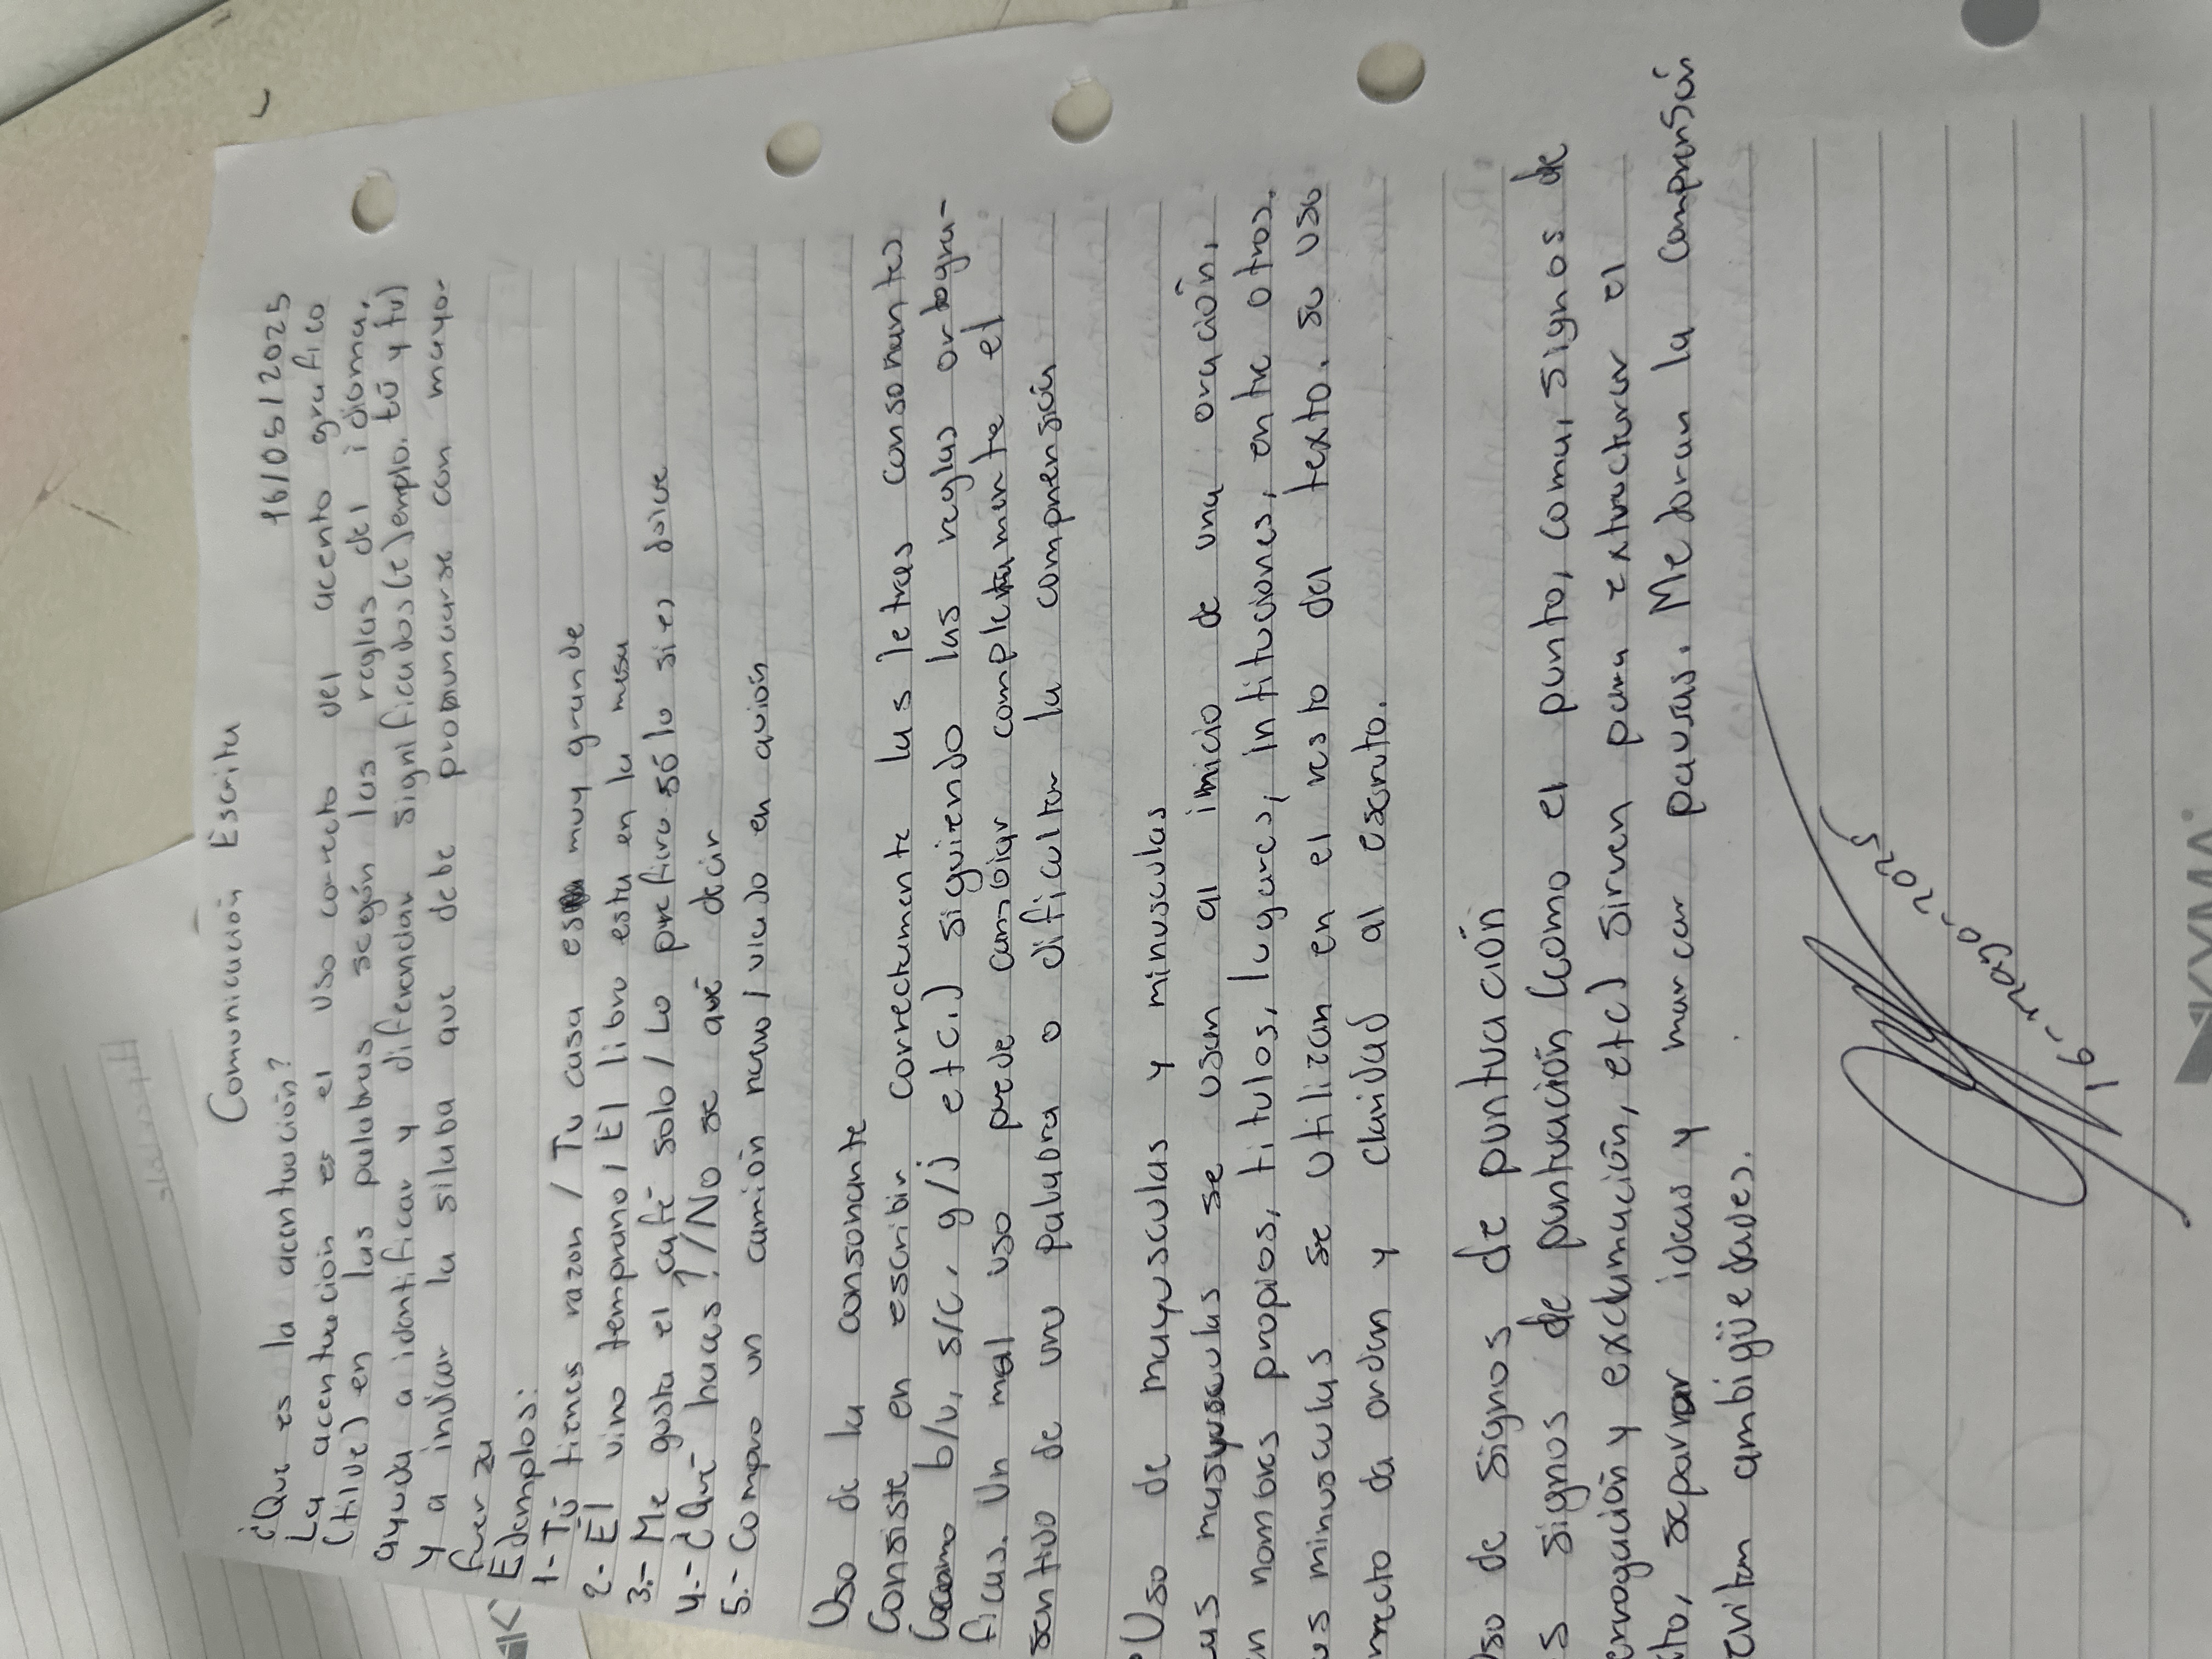 Comunicación Escrita
16/05/2025
¿Que es la acentuación?
La acentuación es el uso correcto del acento grafico
(tilde) en las palabras, según las reglas del idioma,
ayuda a identificar y diferenciar significados (ejemplo. tú y tu)
y a indicar la silaba que debe pronunciarse con mayor
fuerza
Ejemplos:
1- Tú tienes razon / Tu casa es muy grande
2- El vino temprano / El libro esta en la mesa
3.- Me gusta el café solo / Lo prefiero sólo si es dulce
4.- ¿Qué haces? / No se qué decir
5.- Compro un camión nuevo / viajo en avión
Uso de la consonante
Consiste en escribir correctamente las letras consonantes
(como b/v, s/c, g/j etc.) siguiendo las reglas ortogra-
ficas. Un mal uso puede cambiar completamente el
sentido de una palabra o dificultar la comprensión
Uso de mayusculas y minusculas
as mayusculas se usan al inicio de una oración,
n nombres propios, titulos, lugares, intituciones, entre otros.
as minusculas se utilizan en el resto del texto. su uso
rrecto da orden y claridad al escrito.
Uso de signos de puntuación
s signos de puntuación (como el punto, coma, signos de
errogación y exclamación, etc) sirven para extructurar el
xto, separar ideas y marcar pausas. Mejoran la comprensión
evitan ambigüedades.
16-mayo-2025
KYMA